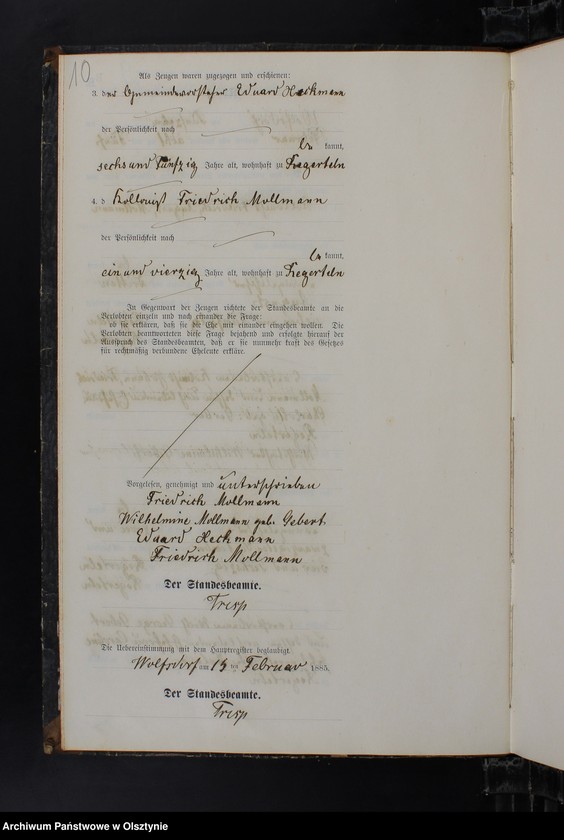 10
Als Zeugen waren zugezogen und erschienen:
3. der Gemeindevorsteher Eduard Heckmann
der Persönlichkeit nach
be kannt,
sechs und fünfzig Jahre alt, wohnhaft zu Kegerteln
4. d Kollonist Friedrich Mollmann
der Persönlichkeit nach
be kannt,
ein und vierzig Jahre alt, wohnhaft zu Kegerteln
In Gegenwart der Zeugen richtete der Standesbeamte an die
Verlobten einzeln und nach einander die Frage:
ob sie erklären, daß sie die Ehe mit einander eingehen wollen. Die
Verlobten beantworteten diese Frage bejahend und erfolgte hierauf der
Ausspruch des Standesbeamten, daß er sie nunmehr kraft des Gesetzes
für rechtmäßig verbundene Eheleute erkläre.
Vorgelesen, genehmigt und unterschrieben
Friedrich Mollmann
Wilhelmine Mollmann geb. Gebert
Eduard Heckmann
Friedrich Mollmann
Der Standesbeamte.
Trisp
Die Uebereinstimmung mit dem Hauptregister beglaubigt
Wolfsdorf am 15 ten Februar 1885.
Der Standesbeamte.
Trisp
Archiwum Państwowe w Olsztynie